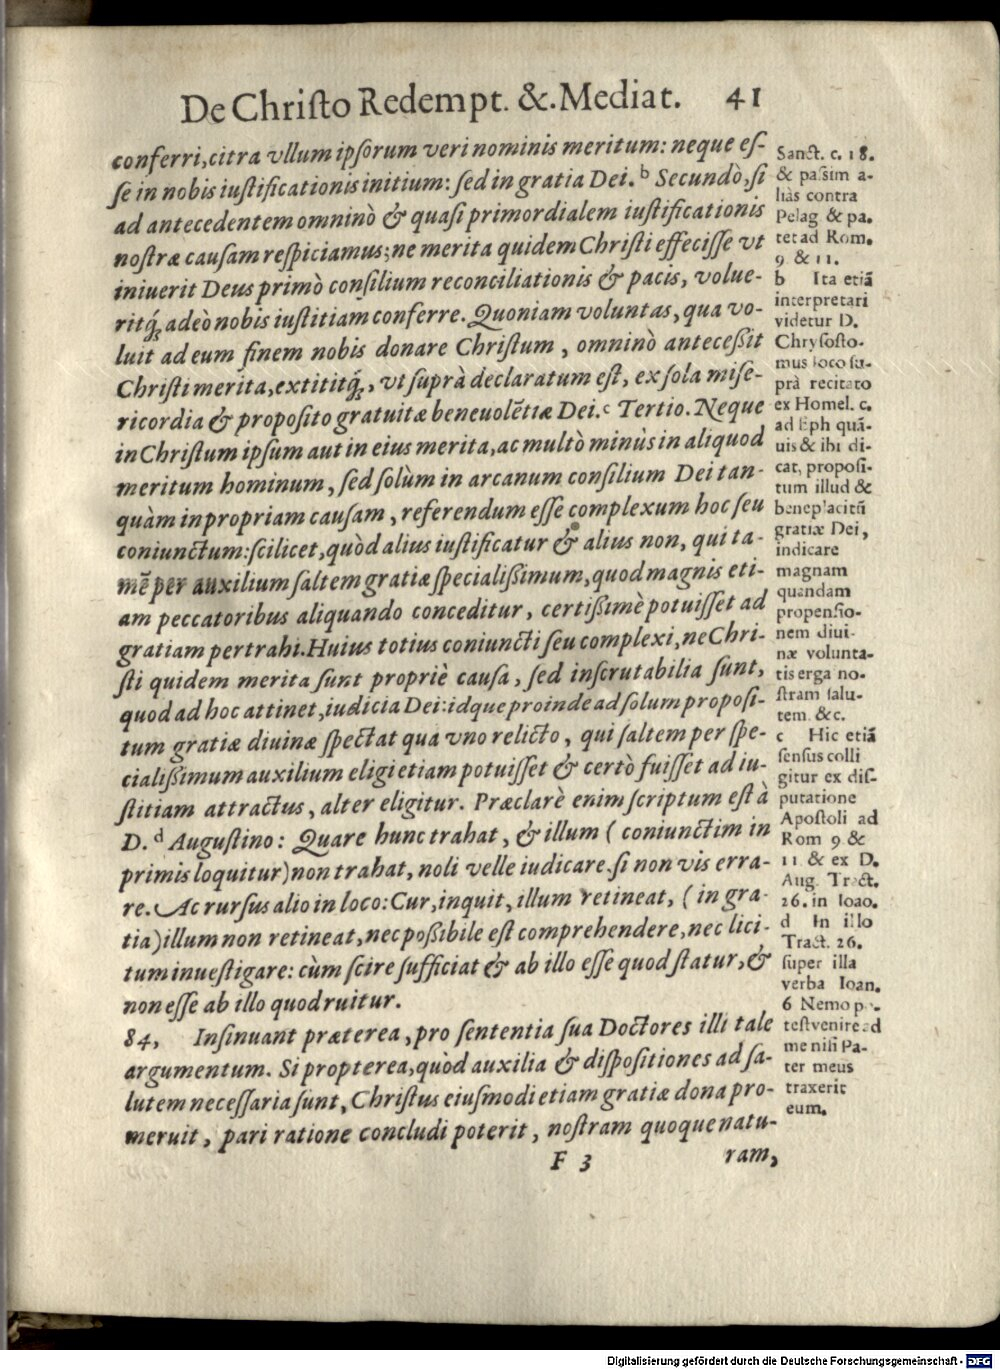 De Chriſto Redempt. &. Mediat. 41
conferri, citra vllum ipſorum veri nominis meritum: neque eſ-
ſe in nobis iuſtificationis initium: ſed in gratia Dei. b Secundò, ſi
ad antecedentem omninò & quaſi primordialem iuſtificationis
noſtræ cauſam reſpiciamus; ne merita quidem Chriſti effeciſſe vt
iniuerit Deus primò conſilium reconciliationis & pacis, volue-
ritq́; adeò nobis iuſtitiam conferre. Quoniam voluntas, qua vo-
luit ad eum finem nobis donare Chriſtum, omninò anteceßit
Chriſti merita, extititq́;, vt ſuprà declaratum eſt, ex ſola miſe-
ricordia & propoſito gratuitæ beneuolẽtiæ Dei. c Tertio. Neque
in Chriſtum ipſum aut in eius merita, ac multò minùs in aliquod
meritum hominum, ſed ſolùm in arcanum conſilium Dei tan-
quàm in propriam cauſam, referendum eſſe complexum hoc ſeu
coniunctum: ſcilicet, quòd alius iuſtificatur & alius non, qui ta-
mẽ per auxilium ſaltem gratiæ ſpecialißimum, quod magnis eti-
am peccatoribus aliquando conceditur, certißimè potuiſſet ad
gratiam pertrahi. Huius totius coniuncti ſeu complexi, ne Chri-
ſti quidem merita ſunt propriè cauſa, ſed inſcrutabilia ſunt,
quod ad hoc attinet, iudicia Dei: idque proinde ad ſolum propoſi-
tum gratiæ diuinæ ſpectat qua vno relicto, qui ſaltem per ſpe-
cialißimum auxilium eligi etiam potuiſſet & certò fuiſſet ad iu-
ſtitiam attractus, alter eligitur. Præclarè enim ſcriptum eſt à
D. d Auguſtino: Quare hunc trahat, & illum ( coniunctim in
primis loquitur) non trahat, noli velle iudicare, ſi non vis erra-
re. Ac rurſus alio in loco: Cur, inquit, illum retineat, ( in gra-
tia) illum non retineat, nec poßibile eſt comprehendere, nec lici-
tum inueſtigare: cùm ſcire ſufficiat & ab illo eſſe quod ſtatur, &
non eſſe ab illo quod ruitur.
84, Inſinuant præterea, pro ſententia ſua Doctores illi tale
argumentum. Si propterea, quòd auxilia & diſpoſitiones ad ſa-
lutem neceſſaria ſunt, Chriſtus eiuſmodi etiam gratiæ dona pro-
meruit, pari ratione concludi poterit, noſtram quoque natu-
F 3 ram,
Sanct. c. 18.
& paſsim a-
liàs contra
Pelag & pa.
tet ad Rom.
9 & 11.
b Ita etiã
interpretari
videtur D.
Chryſoſto-
mus loco ſu-
prà recitato
ex Homel. c.
ad Eph quã-
uis & ibi di-
cat, propoſi-
tum illud &
beneplacitũ
gratiæ Dei,
indicare
magnam
quandam
propenſio-
nem diui-
næ volunta-
tis erga no-
ſtram ſalu-
tem. &c.
c Hic etiã
ſenſus colli
gitur ex diſ-
putatione
Apoſtoli ad
Rom 9 &
11 & ex D.
Aug. Tract.
26. in Ioao.
d In illo
Tract. 26.
ſuper illa
verba Ioan.
6 Nemo po.
teſt venire ad
me niſi Pa-
ter meus
traxerit
eum.
Digitalisierung gefördert durch die Deutsche Forschungsgemeinschaft - DFG